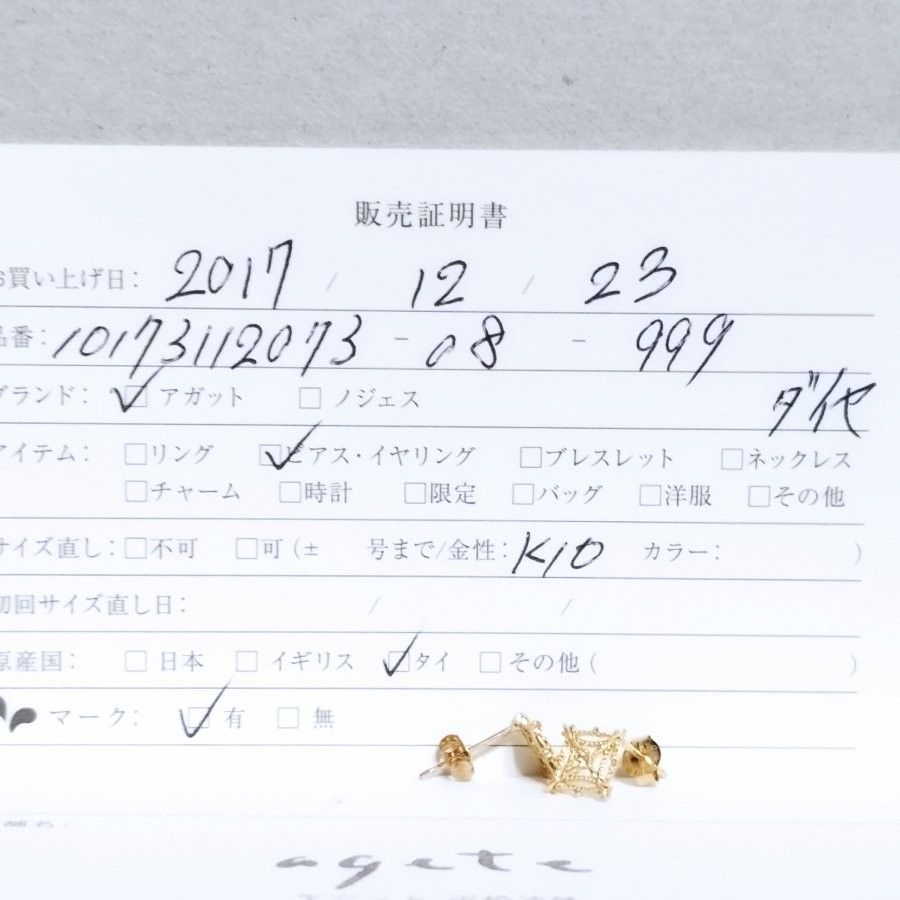 販売証明書
買い上げ日: 2017 / 12 / 23
品番: 10173112073 - 08 - 999
ブランド: ☑ アガット □ ノジェス ダイヤ
アイテム: □リング ☑ピアス・イヤリング □ブレスレット □ネックレス
□チャーム □時計 □限定 □バッグ □洋服 □その他
サイズ直し: □不可 □可 (± 号まで/金性: K10 カラー: )
初回サイズ直し日: / /
原産国: □ 日本 □ イギリス ☑タイ □ その他 ( )
マーク: ☑ 有 □ 無
agete